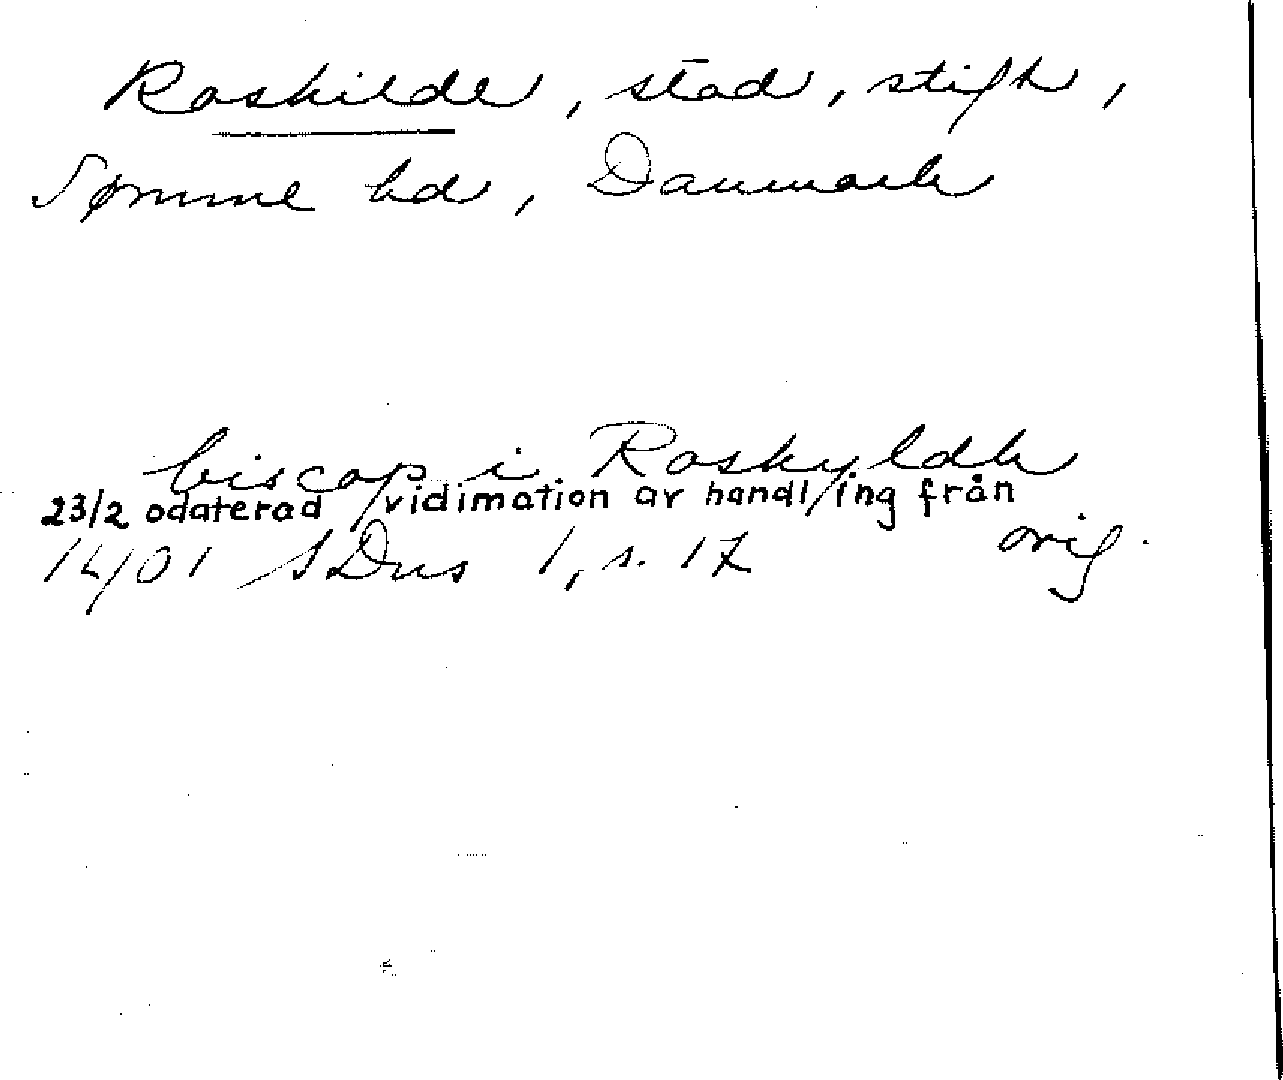 Roskilde, stad, stift,
Sømme hd, Danmark
biscop i Roskyldh
23/2 odaterad vidimation av handling från
1401 SDns 1, s. 17 orig.